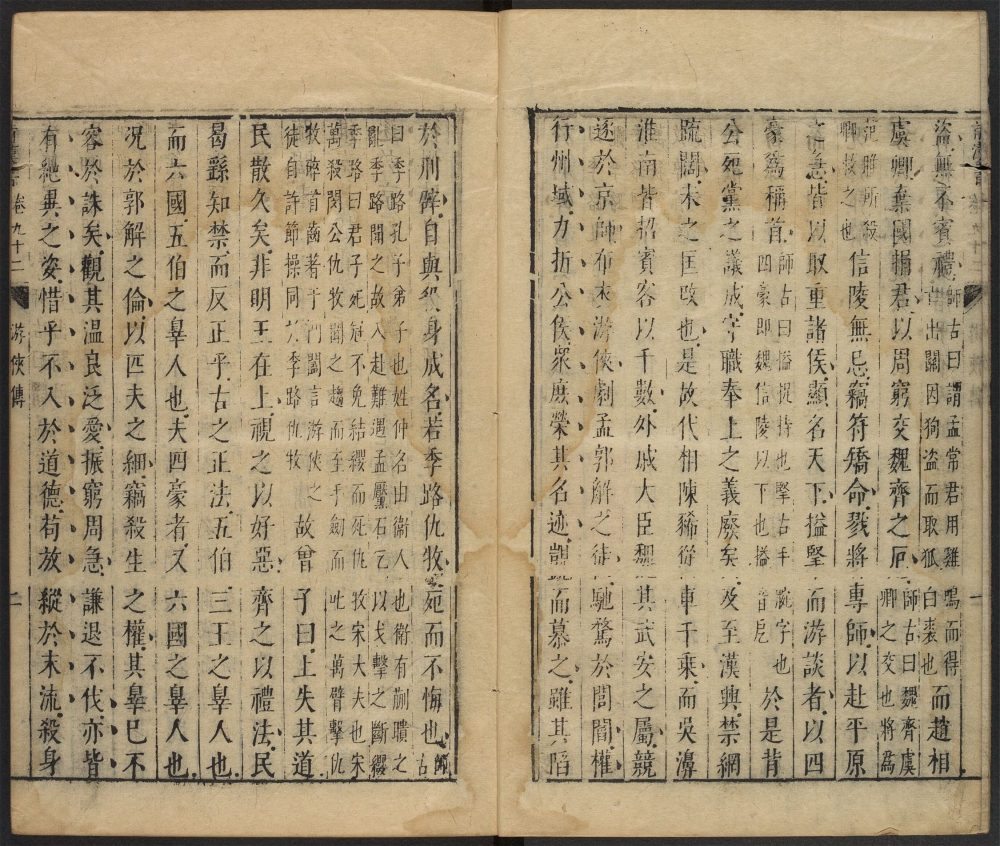 盜無不賓禮
師古曰謂孟常君用雞鳴而得
亡出關因狗盜而取狐白裘也
而趙相
虞卿棄國捐君以周窮交魏齊之厄
師古曰魏齊虞
卿之交也將爲
范雎所殺
卿救之也
信陵無忌竊符矯命戮將專師以赴平原
之急皆以取重諸侯顯名天下搤掔而游談者以四
豪爲稱首
師古曰搤捉持也掔古手腕字也
四豪即魏信陵以下也搤音戹
於是背
公死黨之議成守職奉上之義廢矣及至漢興禁網
疏闊未之匡改也是故代相陳豨從車千乘而吳濞
淮南皆招賓客以千數外戚大臣魏其武安之屬競
逐於京師布衣游俠劇孟郭解之徒馳騖於閭閻權
行州域力折公侯衆庶榮其名迹覬覦而慕之雖其陷
於刑辟自與殺身成名若季路仇牧死而不悔也
師古
曰季路孔子弟子也姓仲名由衛人也衛有蒯聵之
亂季路聞之故入赴難遇孟黶石乞以戈擊之斷纓
季路曰君子死冠不免結纓而死仇牧宋大夫也宋
萬殺閔公仇牧聞之趨而至手劍而叱之萬臂擊仇
牧碎首齒著于門闔言游俠之
徒自許節操同之季路仇牧
故曾子曰上失其道
民散久矣非明王在上視之以好惡齊之以禮法民
曷繇知禁而反正乎古之正法五伯三王之辠人也
而六國五伯之辠人也夫四豪者又六國之辠人也
况於郭解之倫以匹夫之細竊殺生之權其辠已不
容於誅矣觀其温良泛愛振窮周急謙退不伐亦皆
有絶異之姿惜乎不入於道德苟放縱於末流殺身
卷九十二 游俠傳 二